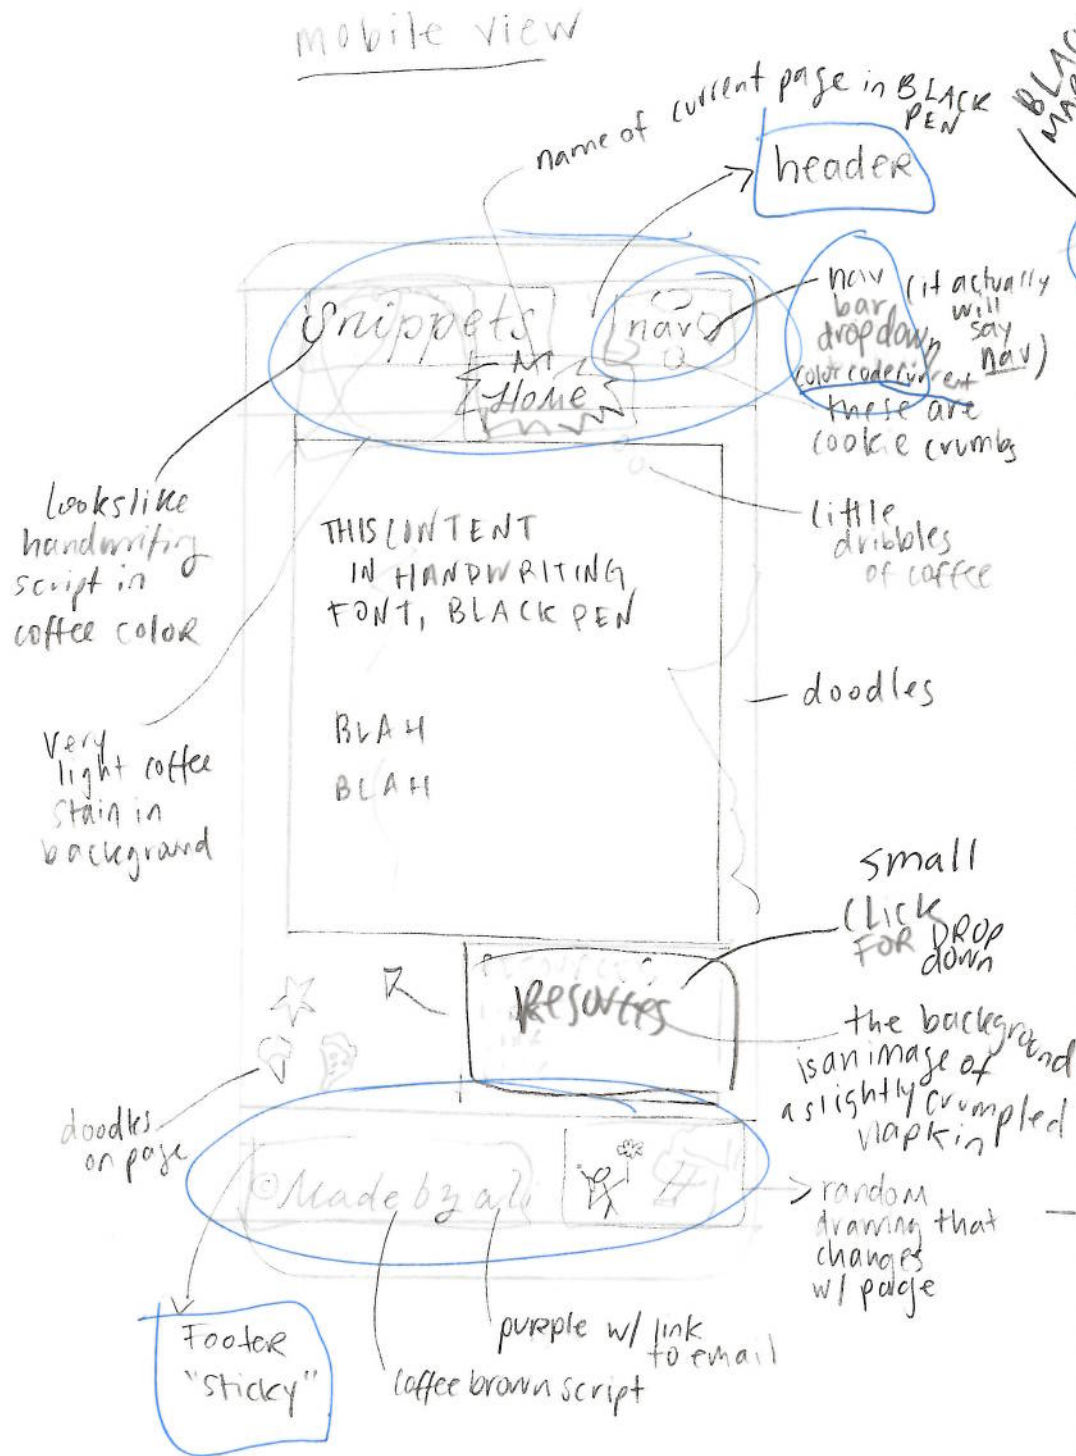 mobile view
name of current page in BLACK
PEN
header
BLACK
Snippets
nav
Home
nav (it actually
bar will
dropdown say
color code current nav)
these are
cookie crumbs
little
dribbles
of coffee
looks like
handwriting
script in
coffee color
THIS CONTENT
IN HANDWRITING
FONT, BLACK PEN
BLAH
BLAH
doodles
very
light coffee
stain in
background
small
CLICK
FOR DROP
DOWN
Resources
the background
is an image of
a slightly crumpled
napkin
doodles
on page
© Made by ali
random
drawing that
changes
w/ page
purple w/ link
to email
coffee brown script
Footer
"sticky"